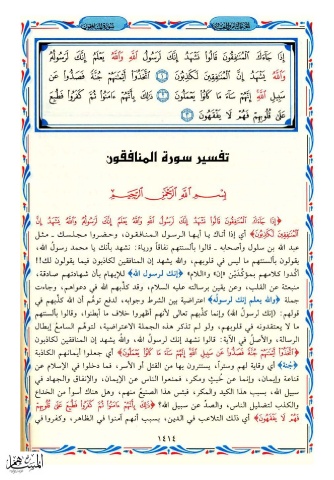 إِذَا جَآءَكَ ٱلْمُنَـٰفِقُونَ قَالُوا۟ نَشْهَدُ إِنَّكَ لَرَسُولُ ٱللَّهِ وَٱللَّهُ يَعْلَمُ إِنَّكَ لَرَسُولُهُۥ
وَٱللَّهُ يَشْهَدُ إِنَّ ٱلْمُنَـٰفِقِينَ لَكَـٰذِبُونَ ١ ٱتَّخَذُوٓا۟ أَيْمَـٰنَهُمْ جُنَّةً فَصَدُّوا۟ عَن
سَبِيلِ ٱللَّهِ إِنَّهُمْ سَآءَ مَا كَانُوا۟ يَعْمَلُونَ ٢ ذَٰلِكَ بِأَنَّهُمْ ءَامَنُوا۟ ثُمَّ كَفَرُوا۟ فَطُبِعَ
عَلَىٰ قُلُوبِهِمْ فَهُمْ لَا يَفْقَهُونَ ٣
تفسير سورة المنافقون
بِسْمِ ٱللَّهِ ٱلرَّحْمَـٰنِ ٱلرَّحِيمِ
﴿إِذَا جَآءَكَ ٱلْمُنَـٰفِقُونَ قَالُوا۟ نَشْهَدُ إِنَّكَ لَرَسُولُ ٱللَّهِ وَٱللَّهُ يَعْلَمُ إِنَّكَ لَرَسُولُهُۥ وَٱللَّهُ يَشْهَدُ إِنَّ
ٱلْمُنَـٰفِقِينَ لَكَـٰذِبُونَ﴾ أي إذا أتاك يا أيها الرسول المنافقون، وحضروا مجلسك ـ مثل
عبد الله بن سلول وأصحابه ـ قالوا بألسنتهم نفاقاً ورياءً: نشهد بأنك يا محمد رسول الله،
يقولون بألسنتهم ما ليس في قلوبهم، والله يشهد إن المنافقين لكاذبون فيما يقولون لك!!
أكدوا كلامهم بمؤكدين «إن» واللام» ﴿إنك لرسول الله﴾ للإيهام بأن شهادتهم صادقة،
منبعثة عن القلب، وعن يقين برسالته عليه السلام، وقد كذبهم الله في دعواهم، وجاءت
جملة ﴿والله يعلم إنك لرسوله﴾ اعتراضية بين الشرط وجوابه، لدفع توهم أن الله كذبهم في
قولهم: (إنك لرسول الله) وإنما كذبهم تعالى لأنهم أظهروا خلاف ما أبطنوا، وقالوا بألسنتهم
ما لا يعتقدونه في قلوبهم، ولو لم تذكر هذه الجملة الاعتراضية، لتوهم السامع إبطال
الرسالة، والأصل في الآية: قالوا نشهد إنك لرسول الله، والله يشهد إن المنافقين لكاذبون
﴿ٱتَّخَذُوٓا۟ أَيْمَـٰنَهُمْ جُنَّةً فَصَدُّوا۟ عَن سَبِيلِ ٱللَّهِ إِنَّهُمْ سَآءَ مَا كَانُوا۟ يَعْمَلُونَ﴾ أي جعلوا أيمانهم الكاذبة
﴿جنة﴾ أي وقاية لهم وستراً، يستترون بها من القتل أو الأسر، فما دخلوا في الإسلام عن
قناعة وإيمان، وإنما عن خبث ومكر، فمنعوا الناس عن الإيمان، والإنفاق والجهاد في
سبيل الله، بسبب هذا الكيد والمكر، فبئس هذا الصنيع منهم، وهل هناك أسوأ من الخداع
والكذب لتضليل الناس، والصد عن سبيل الله؟ ﴿ذَٰلِكَ بِأَنَّهُمْ ءَامَنُوا۟ ثُمَّ كَفَرُوا۟ فَطُبِعَ عَلَىٰ قُلُوبِهِمْ
فَهُمْ لَا يَفْقَهُونَ﴾ أي ذلك التلاعب في الدين، بسبب أنهم آمنوا في الظاهر، وكفروا في
١٤١٤